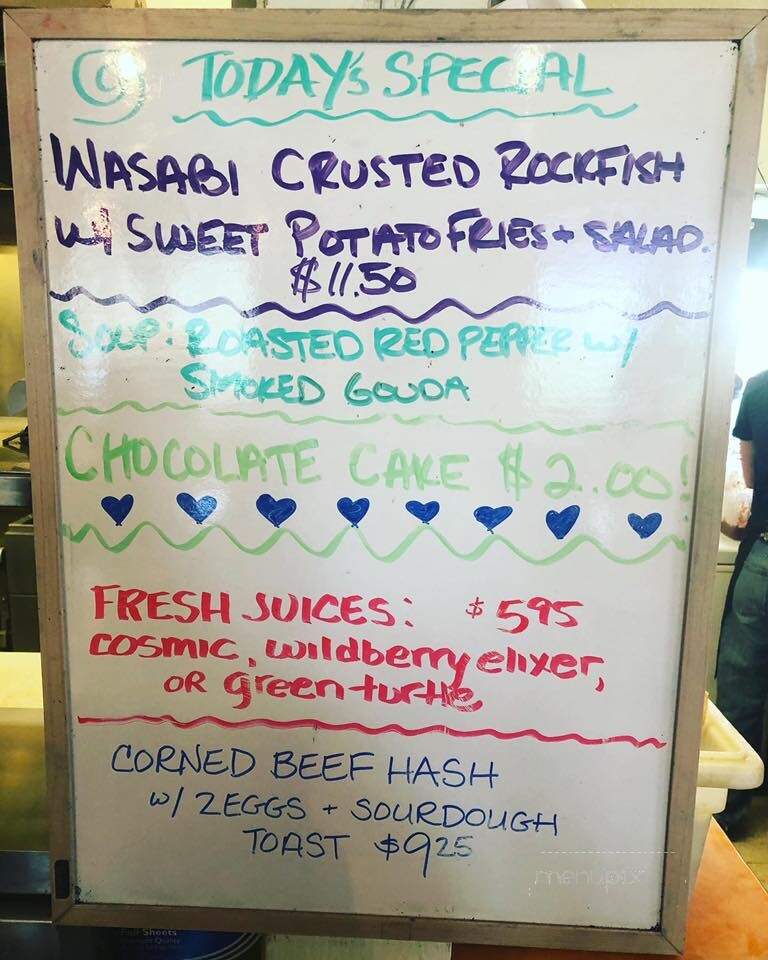 TODAY'S SPECIAL
WASABI CRUSTED ROCKFISH
W/ SWEET POTATO FRIES + SALAD.
$11.50
SOUP: ROASTED RED PEPPER W/
SMOKED GOUDA
CHOCOLATE CAKE $2.00!
FRESH JUICES: $595
cosmic, wildberry elixer,
OR green turtle
CORNED BEEF HASH
w/ 2 EGGS + SOURDOUGH
TOAST $925
menupix
Sheets